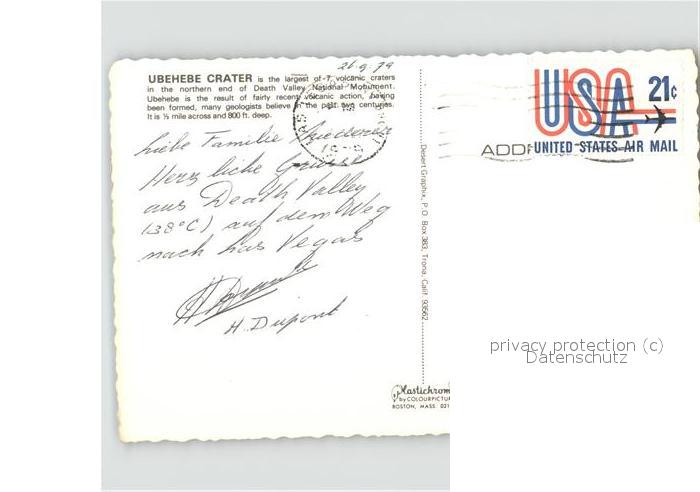 26.9.79
UBEHEBE CRATER is the largest of 7 volcanic craters
in the northern end of Death Valley National Monument.
Ubehebe is the result of fairly recent volcanic action, having
been formed, many geologists believe in the past two centuries.
It is ½ mile across and 800 ft. deep.
Liebe Familie
Herzliche Grüsse
aus Death Valley
(38°C) auf dem Weg
nach Las Vegas
H. Dupont
Desert Graphix, P.O. Box 383, Trona, Calif. 93562
Plastichrom
by COLOURPICTUR
BOSTON, MASS. 021
USA 21¢
UNITED STATES AIR MAIL
ADD
privacy protection (c)
Datenschutz